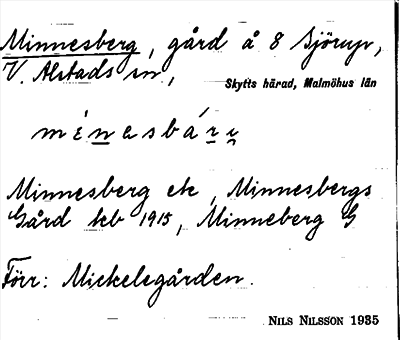 Minnesberg, gård å 8 Sjörup,
V. Alstads sn,
Skytts härad, Malmöhus län
ménasbárų
Minnesberg ek, Minnesbergs
Gård kb 1915, Minneberg G
Förr: Mickelegården.
NILS NILSSON 1935